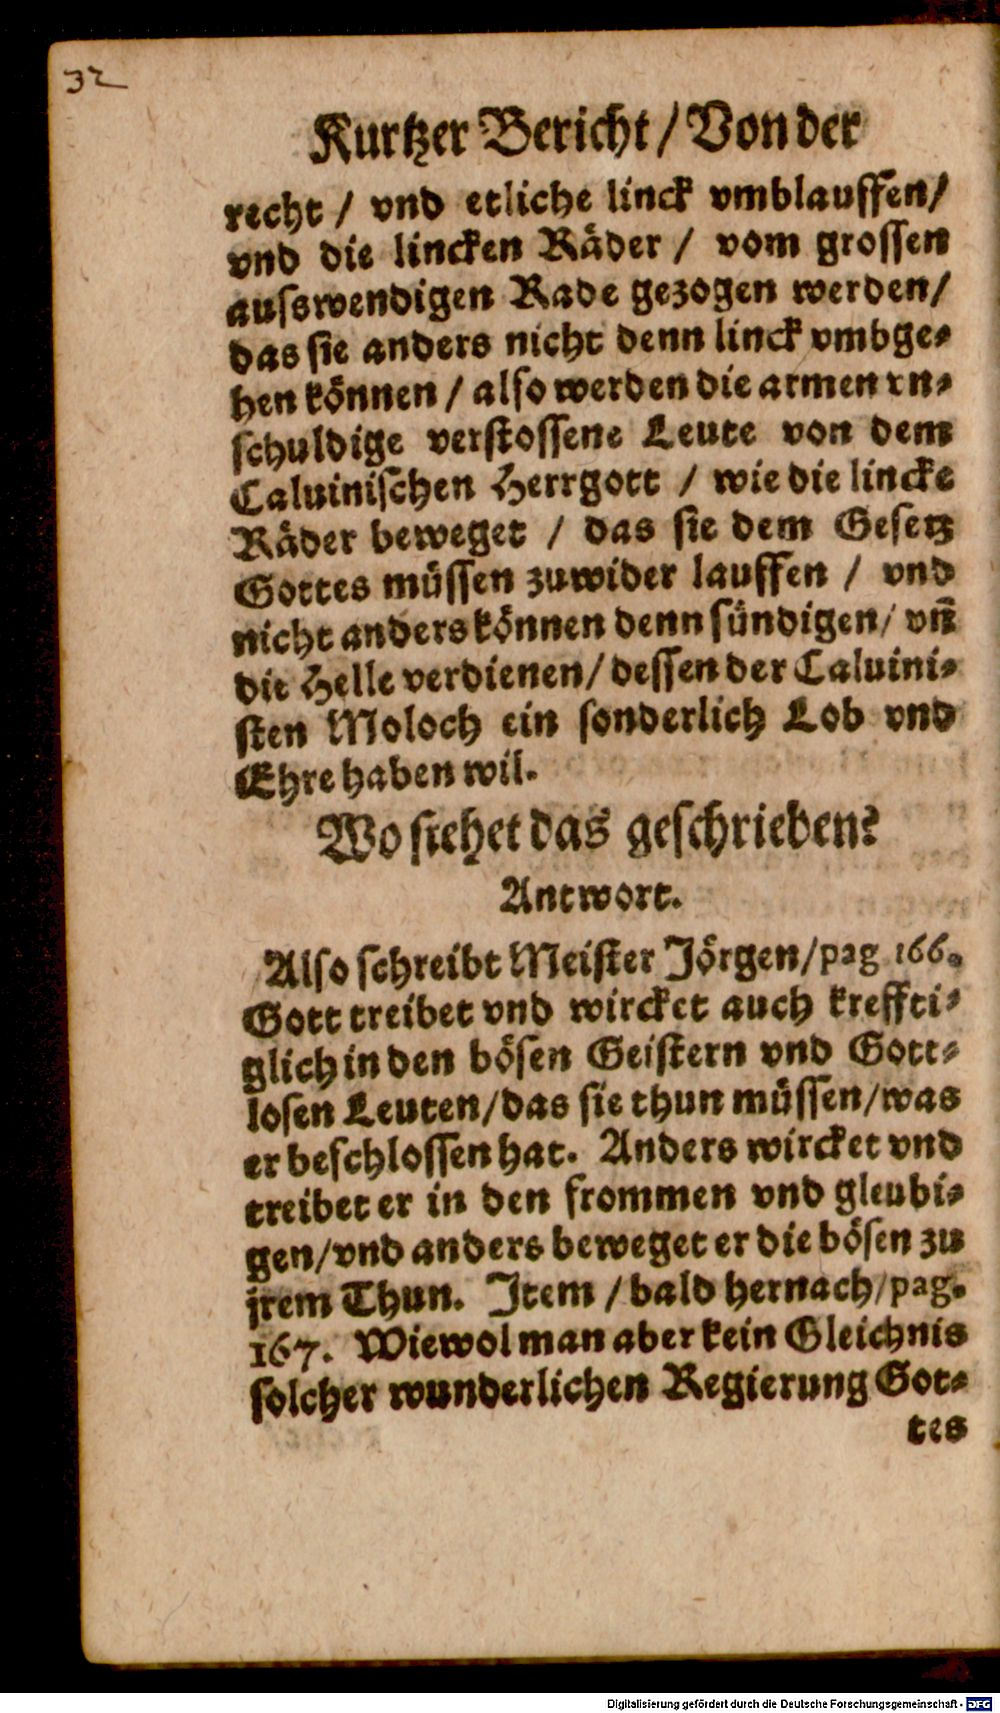 32
Kurtzer Bericht / Von der
recht / vnd etliche linck vmblauffen/
vnd die lincken Räder / vom grossen
auswendigen Rade gezogen werden/
das sie anders nicht denn linck vmbge⸗
hen können / also werden die armen vn⸗
schuldige verstossene Leute von dem
Caluinischen Herrgott / wie die lincke
Räder beweget / das sie dem Gesetz
Gottes müssen zuwider lauffen / vnd
nicht anders können denn sündigen/ vn̄
die Helle verdienen/ dessen der Caluini⸗
sten Moloch ein sonderlich Lob vnd
Ehre haben wil.
Wo stehet das geschrieben?
Antwort.
Also schreibt Meister Jörgen/pag 166.
Gott treibet vnd wircket auch kreffti⸗
glich in den bösen Geistern vnd Gott⸗
losen Leuten/das sie thun müssen/was
er beschlossen hat. Anders wircket vnd
treibet er in den frommen vnd gleubi⸗
gen/vnd anders beweget er die bösen zu
jrem Thun. Item / bald hernach/pag.
167. Wiewol man aber kein Gleichnis
solcher wunderlichen Regierung Got⸗
tes
Digitalisierung gefördert durch die Deutsche Forschungsgemeinschaft - DFG